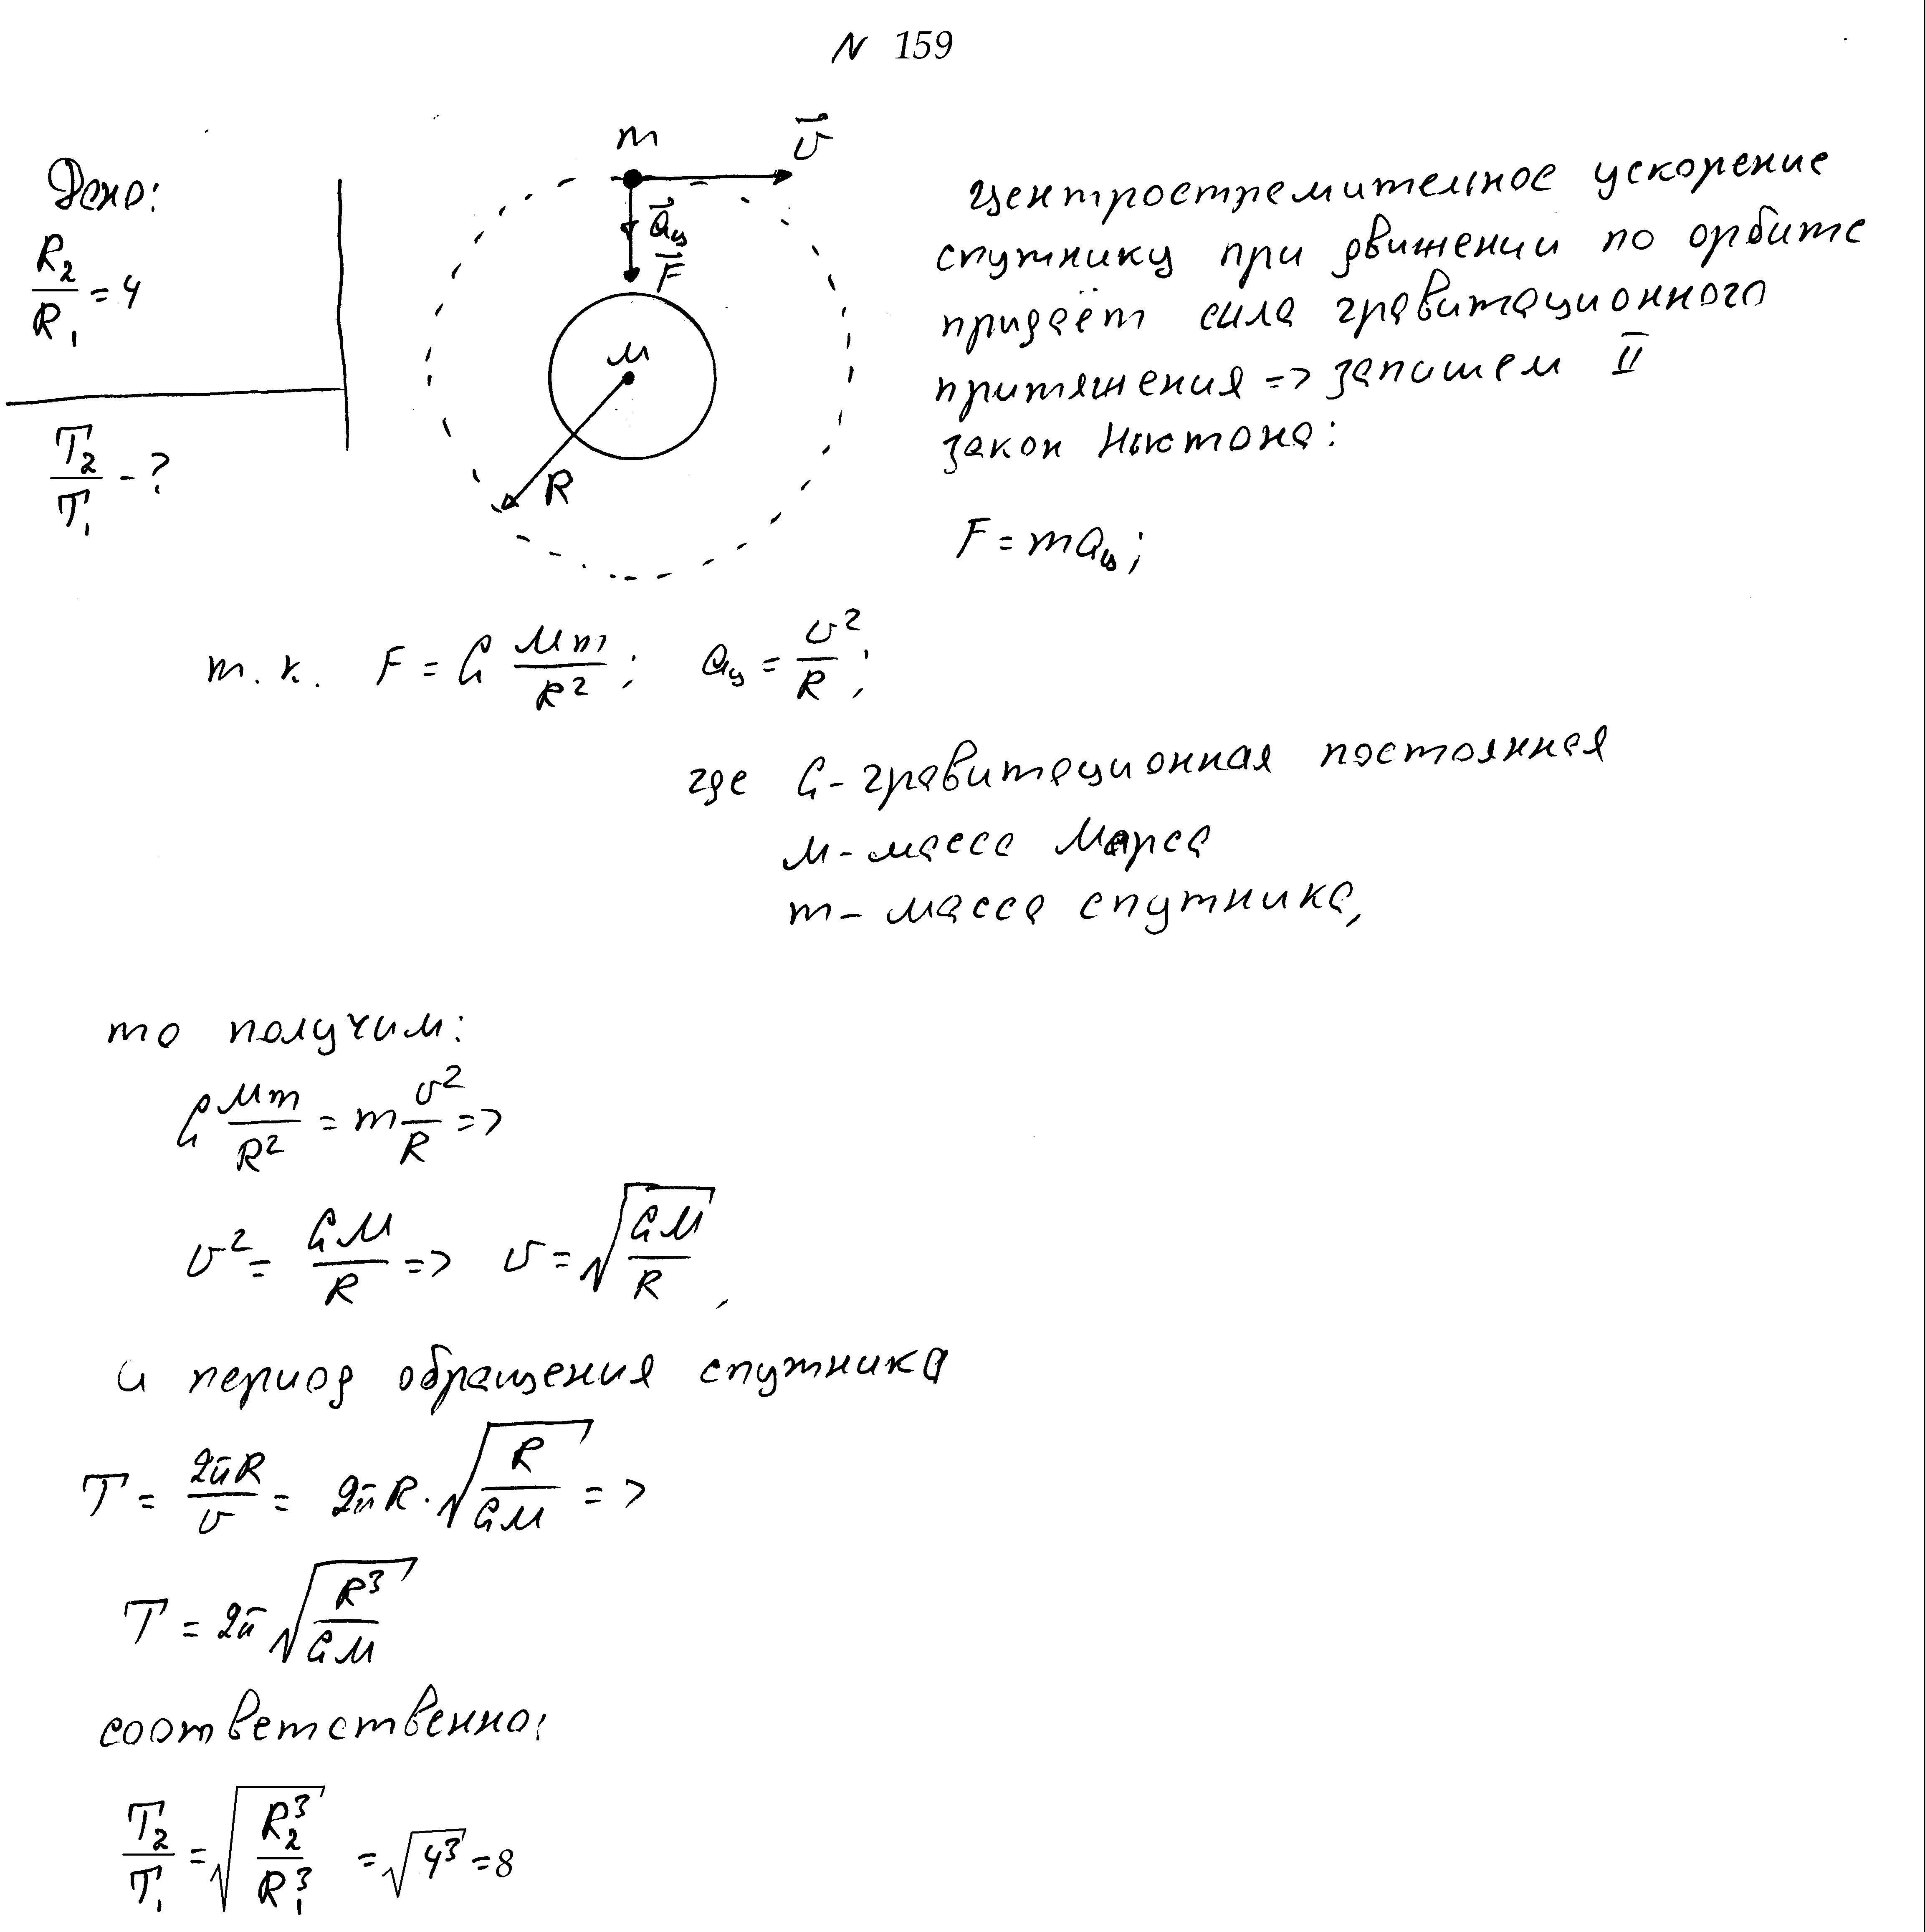 N 159
Дано:
R₂/R₁ = 4
T₂/T₁ - ?
m
v⃗
a⃗ц
F⃗
M
R
Центростремительное ускорение
спутнику при движении по орбите
придаёт сила гравитационного
притяжения => запишем II
закон Ньютона:
F = maц;
т.к. F = G Mm/R²; aц = v²/R;
где G - гравитационная постоянная
M - масса Марса
m - масса спутника,
то получим:
G Mm/R² = m v²/R =>
v² = GM/R => v = √(GM/R),
и период обращения спутника
T = 2πR/v = 2πR · √(R/GM) =>
T = 2π √(R³/GM)
соответственно:
T₂/T₁ = √(R₂³/R₁³) = √4³ = 8